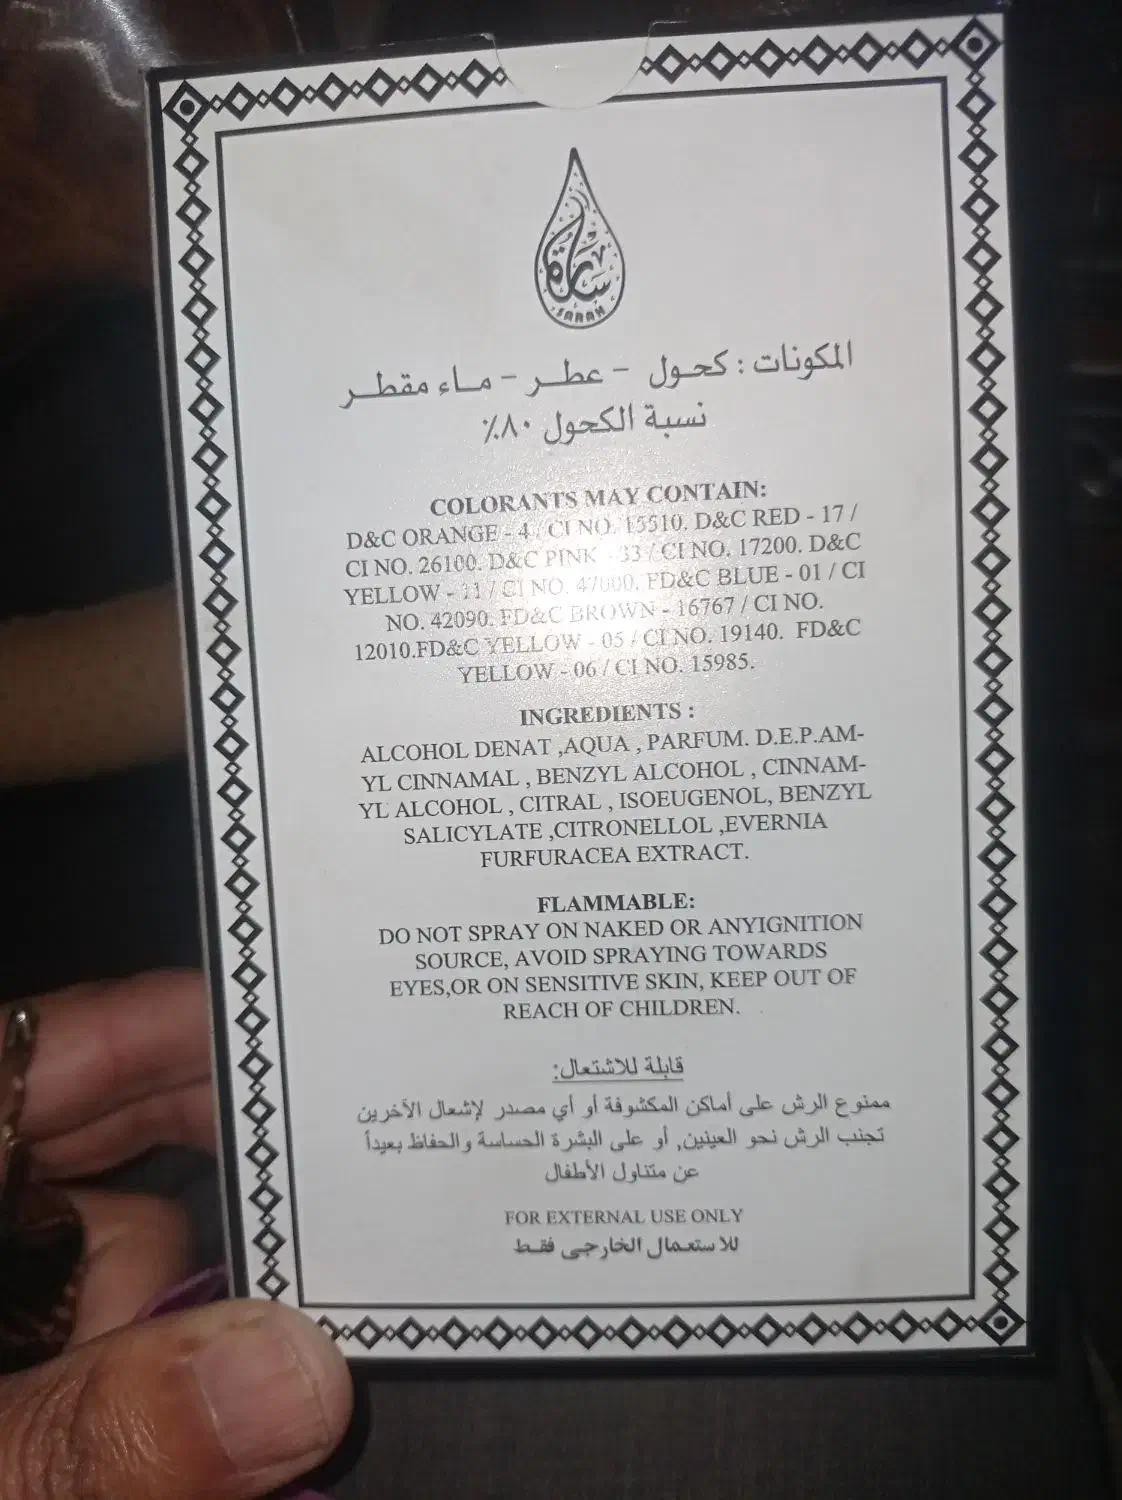 سارة
SARAH
المكونات : كحول - عطر - ماء مقطر
نسبة الكحول ٨٠٪
COLORANTS MAY CONTAIN:
D&C ORANGE - 4 / CI NO. 15510. D&C RED - 17 /
CI NO. 26100. D&C PINK - 33 / CI NO. 17200. D&C
YELLOW - 11 / CI NO. 47000. FD&C BLUE - 01 / CI
NO. 42090. FD&C BROWN - 16767 / CI NO.
12010.FD&C YELLOW - 05 / CI NO. 19140. FD&C
YELLOW - 06 / CI NO. 15985.
INGREDIENTS :
ALCOHOL DENAT ,AQUA , PARFUM. D.E.P.AM-
YL CINNAMAL , BENZYL ALCOHOL , CINNAM-
YL ALCOHOL , CITRAL , ISOEUGENOL, BENZYL
SALICYLATE ,CITRONELLOL ,EVERNIA
FURFURACEA EXTRACT.
FLAMMABLE:
DO NOT SPRAY ON NAKED OR ANYIGNITION
SOURCE, AVOID SPRAYING TOWARDS
EYES,OR ON SENSITIVE SKIN, KEEP OUT OF
REACH OF CHILDREN.
قابلة للاشتعال:
ممنوع الرش على أماكن المكشوفة أو أي مصدر لإشعال الآخرين
تجنب الرش نحو العينين, أو على البشرة الحساسة والحفاظ بعيداً
عن متناول الأطفال
FOR EXTERNAL USE ONLY
للاستعمال الخارجى فقط